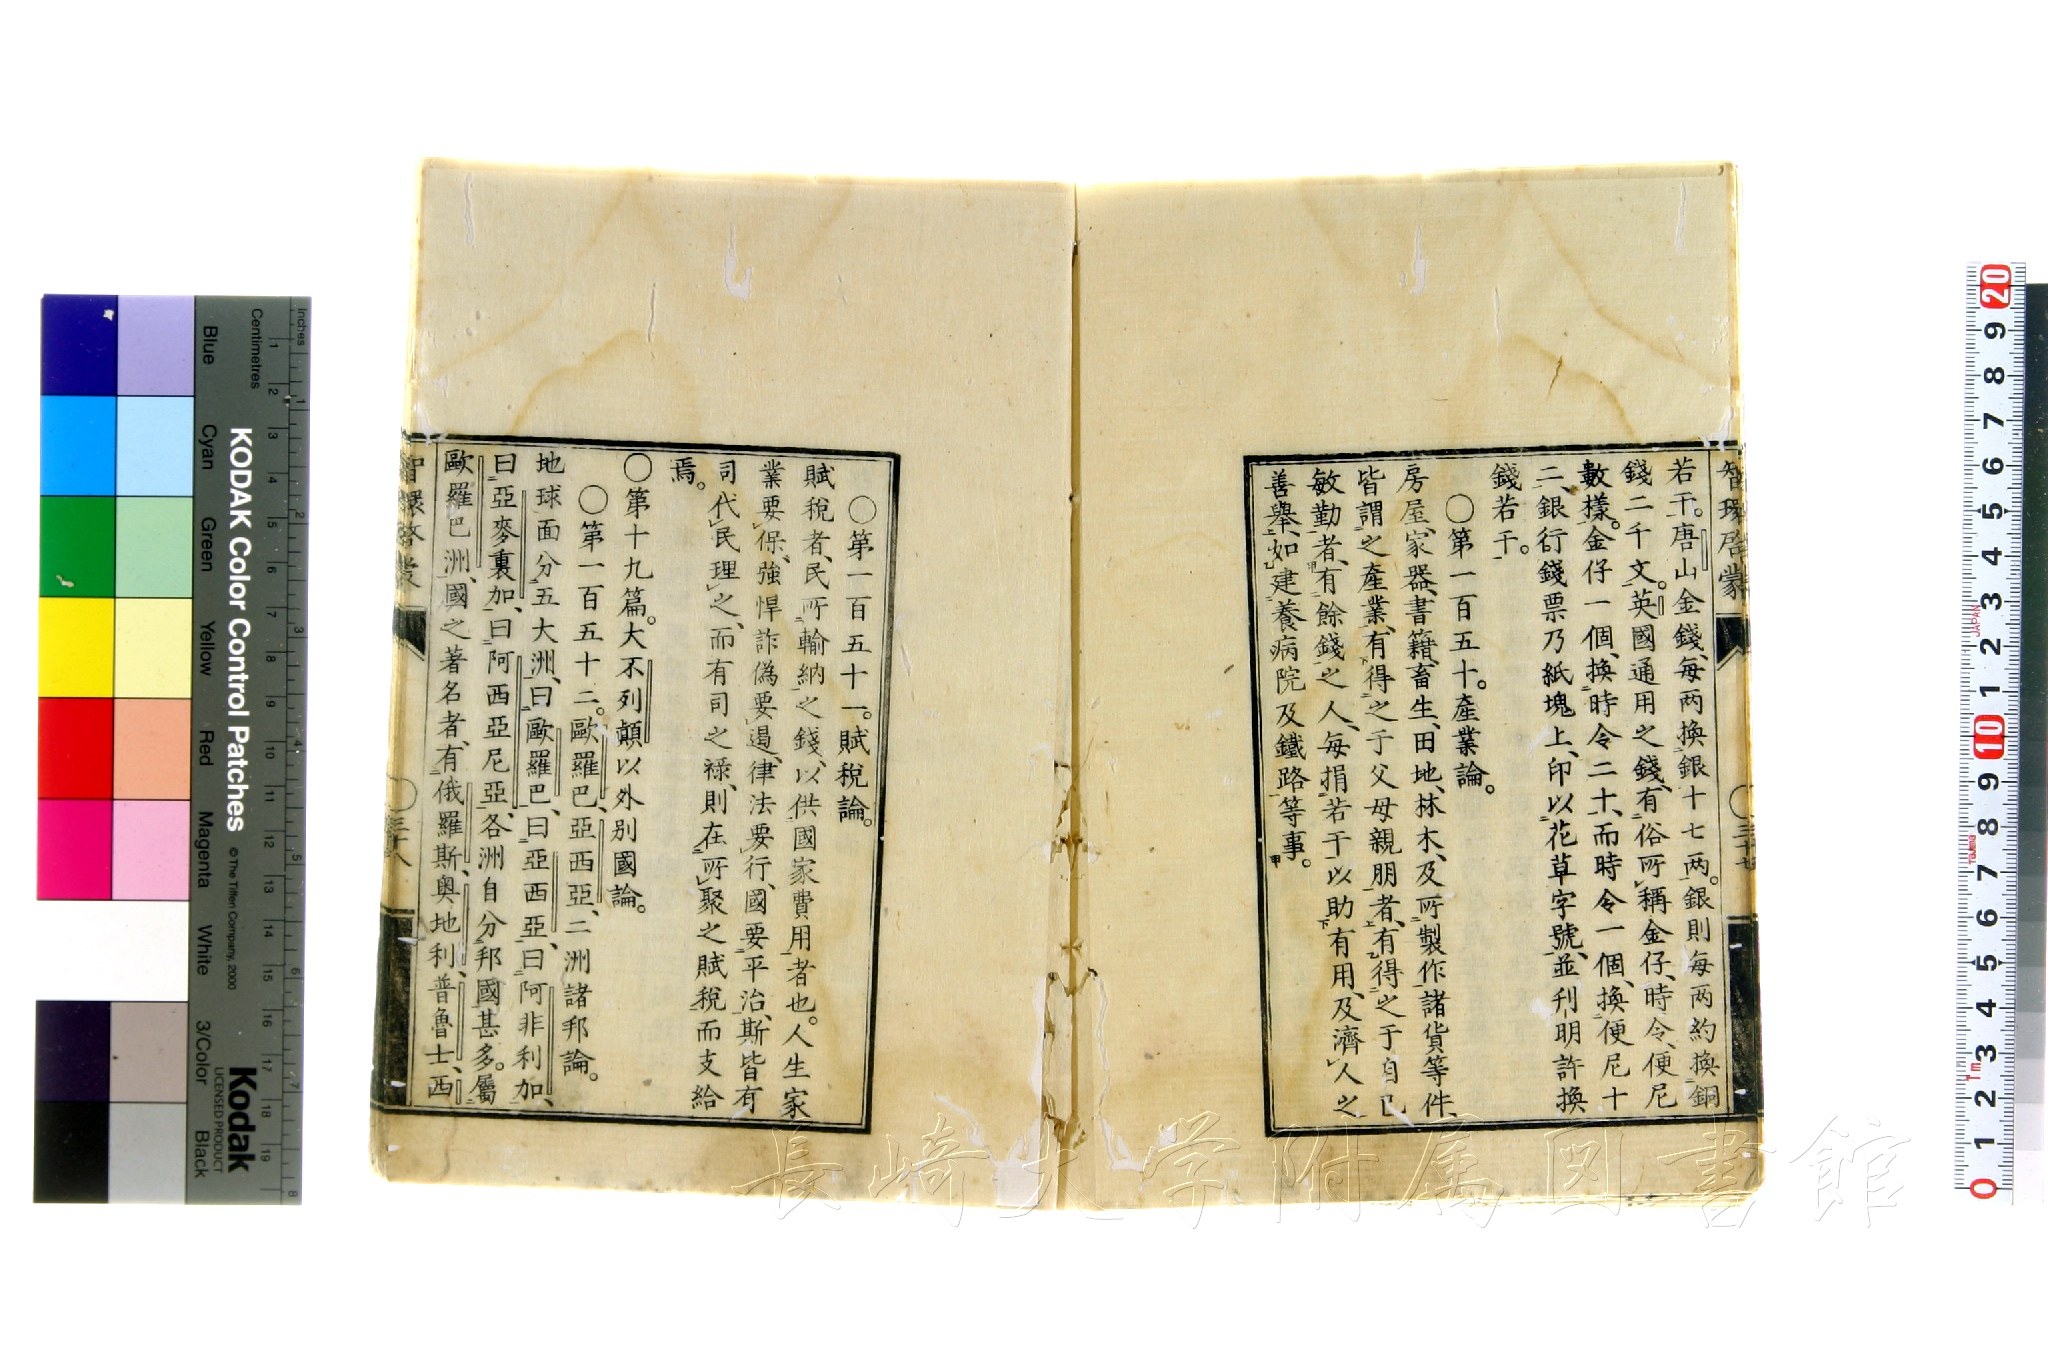 智環啓蒙
三十七
若干。唐山金錢、每兩換銀十七兩。銀則每兩約換銅
錢二千文。英國通用之錢、有俗所稱金仔、時令、便尼
數樣。金仔一個、換時令二十、而時令一個、換便尼十
二、銀行錢票乃紙塊上、印以花草字號、並刋明許換
錢若干。
○第一百五十。產業論。
房屋、家器、書籍、畜生、田地、林木、及所製作諸貨等件、
皆謂之產業、有得之于父母親朋者、有得之于自己
敏勤者、有餘錢之人、每捐若干以助有用、及濟人之
善舉、如建養病院及鐵路等事。
○第一百五十一。賦稅論。
賦稅者、民所輸納之錢、以供國家費用者也。人生家
業要保、強悍詐僞要遏、律法要行、國要平治、斯皆有
司代民理之、而有司之祿、則在所聚之賦稅而支給
焉。
○第十九篇。大不列顛以外別國論。
○第一百五十二。歐羅巴、亞西亞、二洲諸邦論。
地球面分五大洲、曰歐羅巴、曰亞西亞、曰阿非利加、
曰亞麥裏加、曰阿西亞尼亞、各洲自分邦國甚多。屬
歐羅巴洲、國之著名者、有俄羅斯、奧地利、普魯士、西
智環啓蒙
三十八
長崎大学附属図書館
KODAK Color Control Patches
© The Tiffen Company, 2000
Kodak
LICENSED PRODUCT
Inches
Centimetres
Blue
Cyan
Green
Yellow
Red
Magenta
White
3/Color
Black
1 2 3 4 5 6 7 8 9 10 11 12 13 14 15 16 17 18 19
1 2 3 4 5 6 7 8
20 9 8 7 6 5 4 3 2 1 10 9 8 7 6 5 4 3 2 1 0
JAPAN